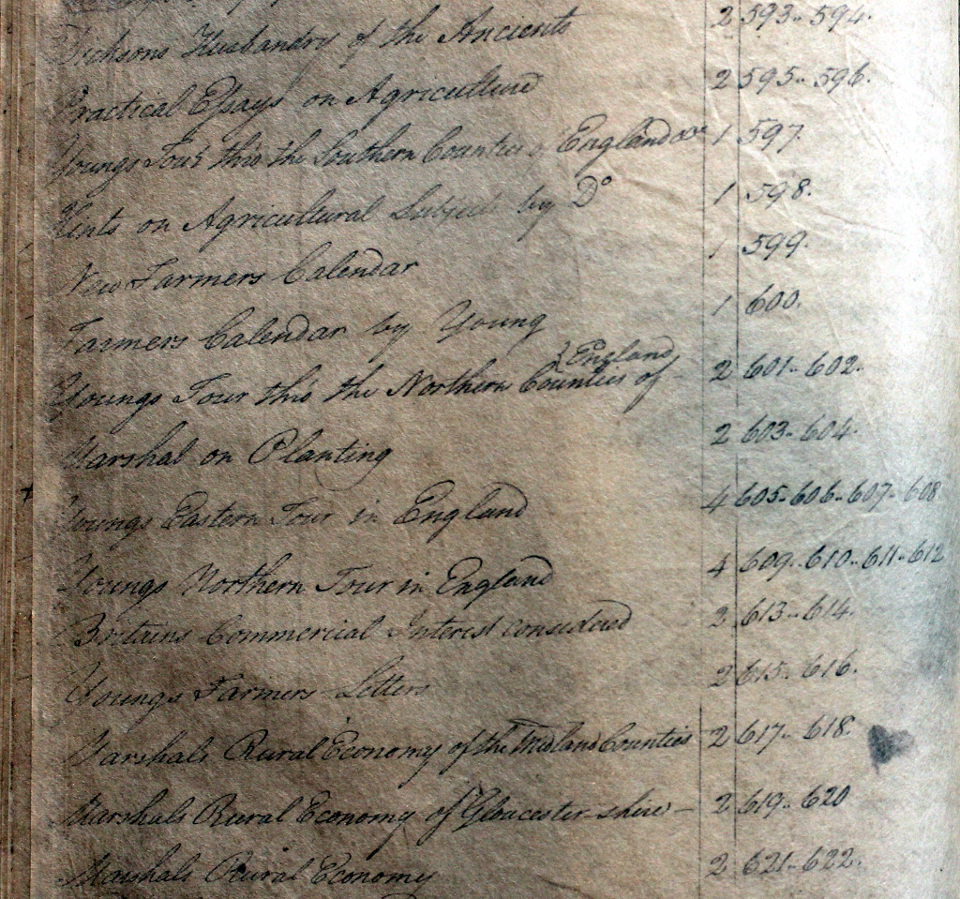 Dicksons Husbandry of the Ancients 2 593.. 594.
Practical Essays on Agriculture 2 595.. 596.
Youngs Tour thro the Southern Counties of England &c 1 597.
Hints on Agricultural Subjects by Do 1 598.
New Farmers Calendar 1 599.
Farmers Calendar by Young 1 600.
Youngs Tour thro the Northern Counties of England 2 601.. 602.
Marshal on Planting 2 603.. 604.
Youngs Eastern Tour in England 4 605..606..607..608
Youngs Northern Tour in England 4 609..610..611..612
Britains Commercial Interest considered 2 613..614.
Youngs Farmers Letters 2 615.. 616.
Marshals Rural Economy of the Midland Counties 2 617.. 618.
Marshals Rural Economy of Gloucester-shire – 2 619.. 620
Marshals Rural Economy 2 621..622.